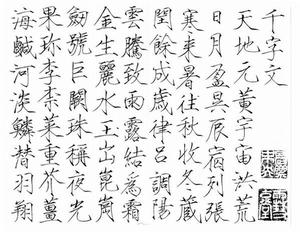 千字文
天地元黄宇宙洪荒
日月盈昃辰宿列張
寒来暑往秋收冬蔵
閏餘成歳律呂調陽
雲騰致雨露結爲霜
金生麗水玉出崑崗
劔號巨闕珠稱夜光
果珎李柰菜重芥薑
海鹹河淡鱗潜羽翔